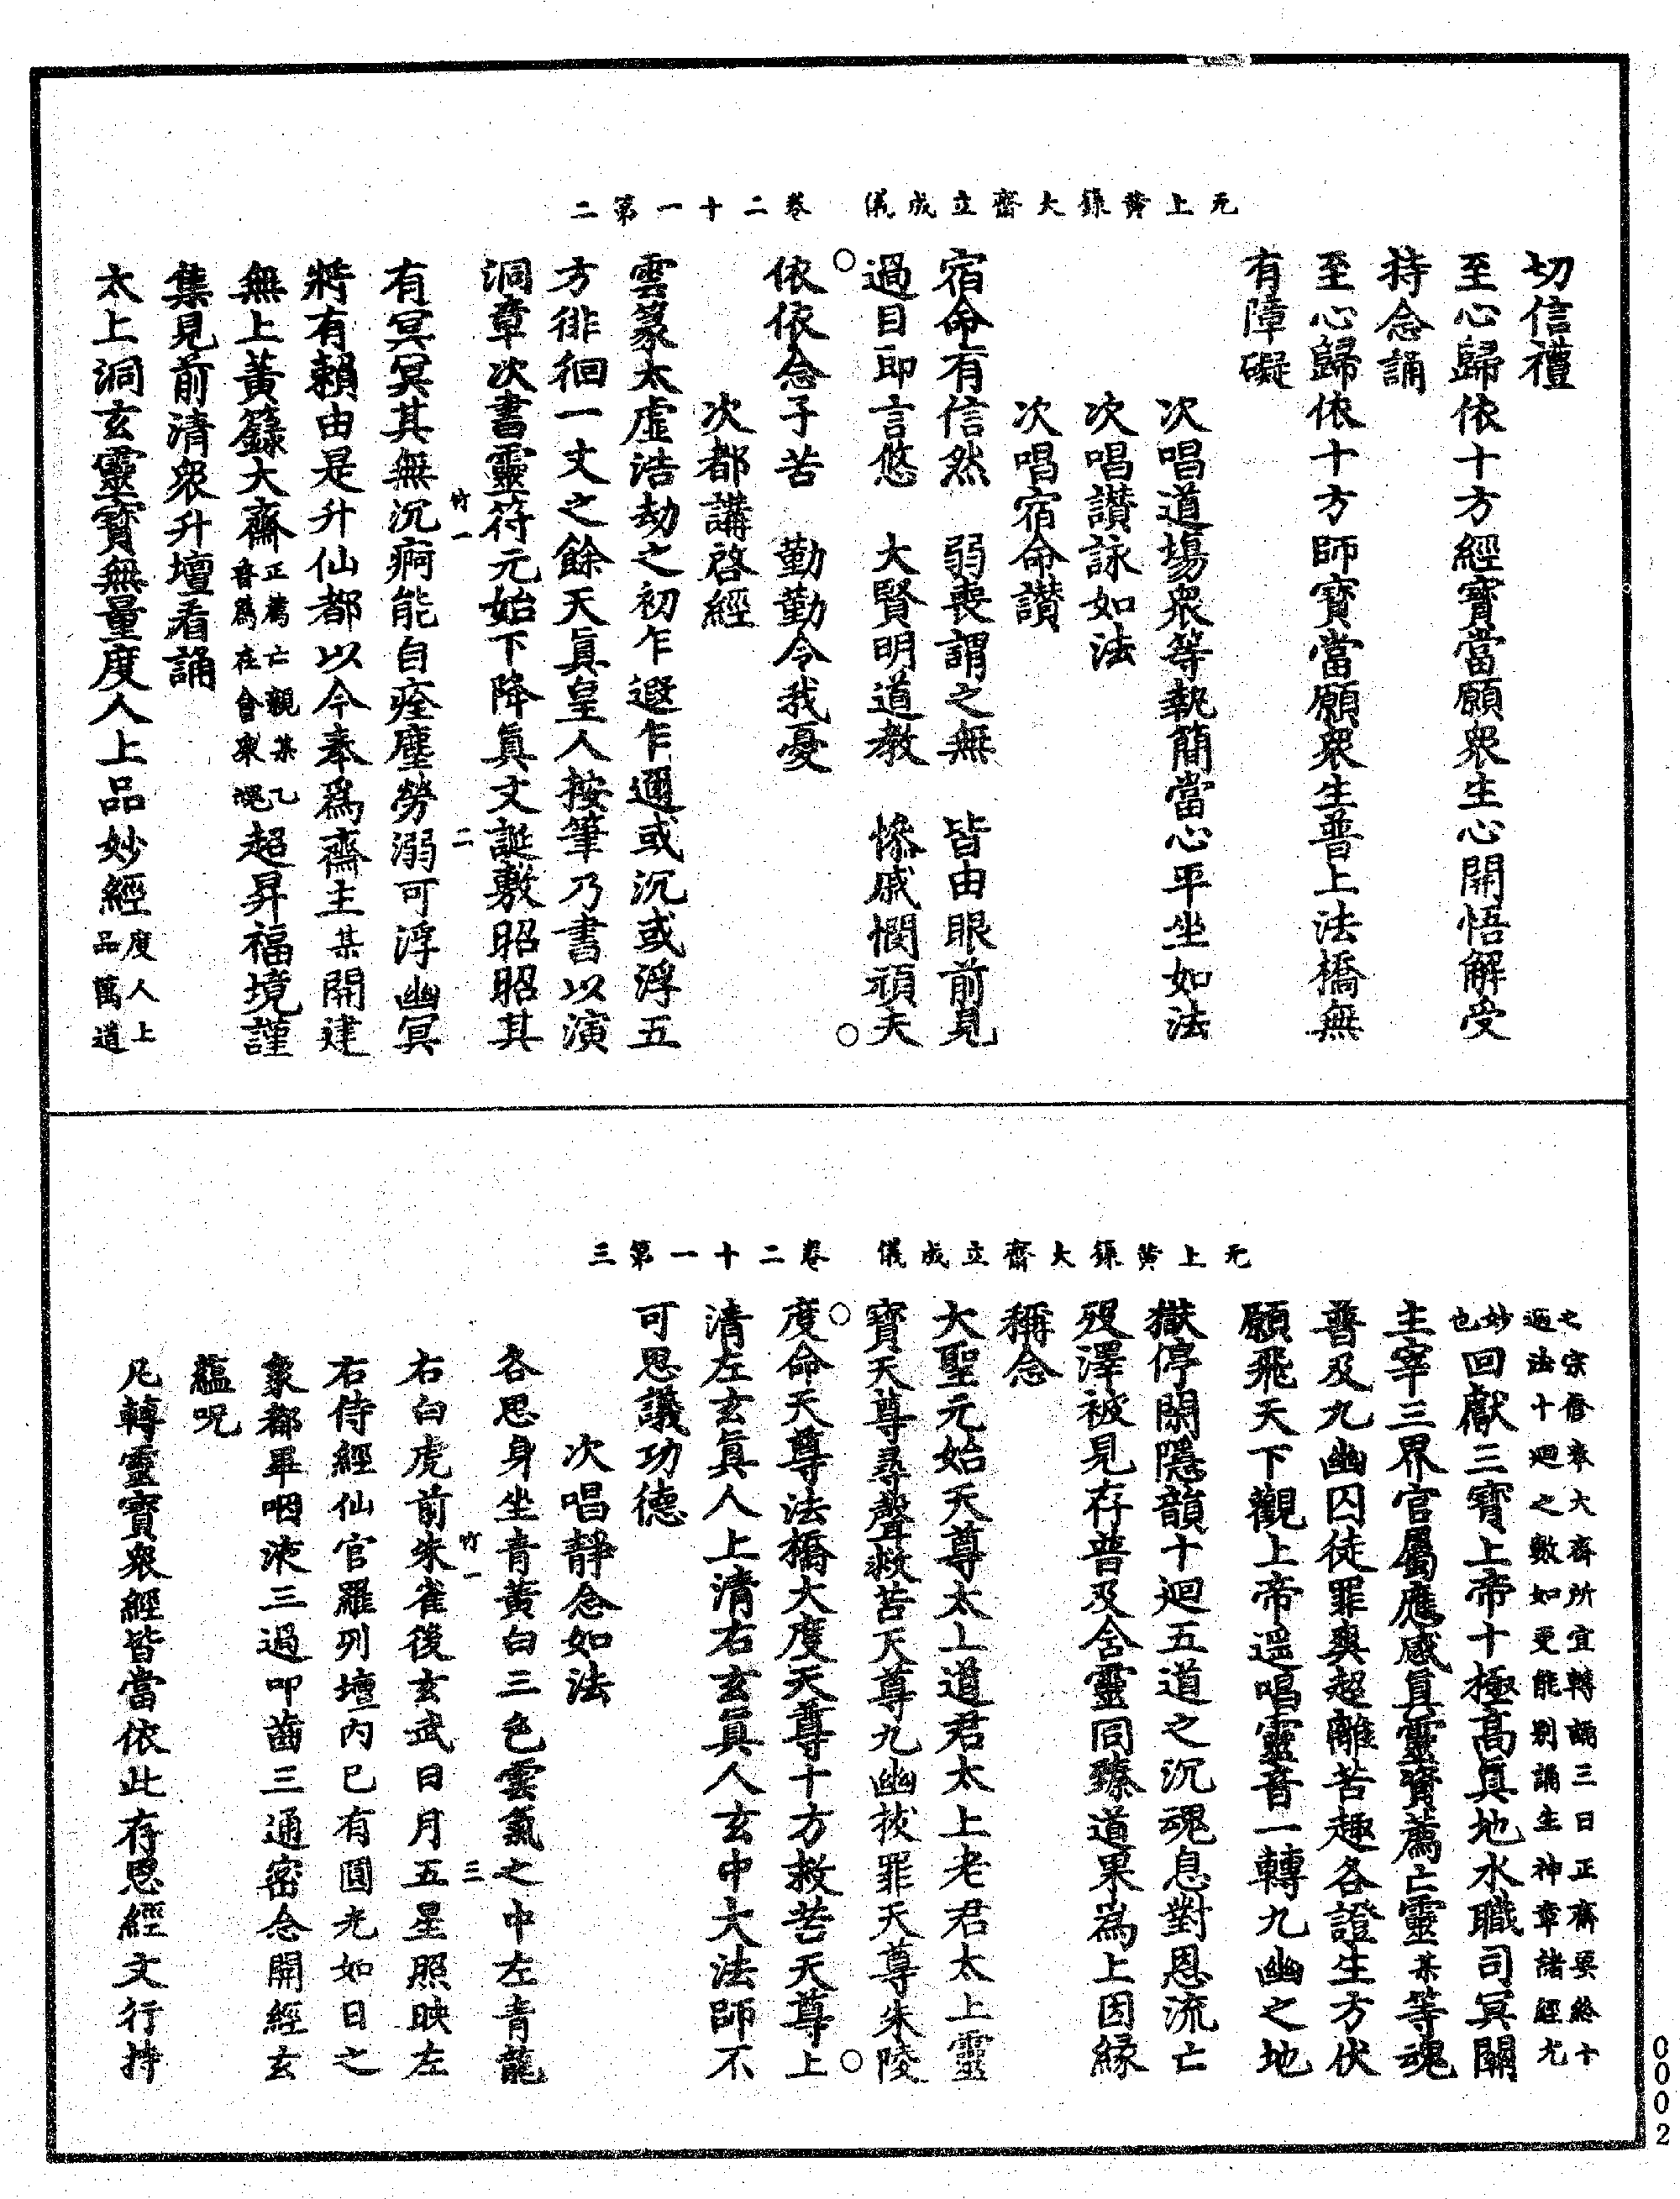 无上黃籙大齋立成儀　卷二十一第二
切信禮
至心歸依十方經寶當願衆生心開悟解受
持念誦
至心歸依十方師寶當願衆生普上法橋無
有障礙
次唱道場衆等執簡當心平坐如法
次唱讚詠如法
次唱宿命讚
宿命有信然　弱喪謂之無　皆由眼前見
過目即言悠　大賢明道教　慘戚憫頑夫
依依念子苦　勤勤令我憂
次都講啓經
雲篆太虛浩劫之初乍遐乍邇或沉或浮五
方徘徊一丈之餘天真皇人按筆乃書以演
洞章次書靈符元始下降真文誕敷昭昭其
竹一　二
有冥冥其無沉痾能自痊塵勞溺可浮幽冥
將有賴由是升仙都以今奉爲齋主某開建
無上黃籙大齋正薦亡親某乙
普爲在會衆魂超昇福境謹
集見前清衆升壇看誦
太上洞玄靈寶無量度人上品妙經度人上
品萬道
无上黃籙大齋立成儀　卷二十一第三
之宗脩奉大齋所宜轉誦三日正齋要終十
過法十廻之數如更能别誦生神章諸經尤
妙
也回獻三寶上帝十極高真地水職司冥關
主宰三界官屬應感真靈資薦亡靈某等魂
普及九幽囚徒罪爽超離苦趣各證生方伏
願飛天下觀上帝遥唱靈音一轉九幽之地
獄停閑隱韻十廻五道之沉魂息對恩流亡
歿澤被見存普及含靈同臻道果爲上因緣
稱念
大聖元始天尊太上道君太上老君太上靈
寶天尊尋聲救苦天尊九幽拔罪天尊朱陵
度命天尊法橋大度天尊十方救苦天尊上
清左玄真人上清右玄真人玄中大法師不
可思議功德
次唱靜念如法
各思身坐青黃白三色雲氣之中左青龍
竹一　三
右白虎前朱雀後玄武日月五星照映左
右侍經仙官羅列壇内已有圓光如日之
象都畢咽液三過叩齒三通密念開經玄
蘊呪
凡轉靈寶衆經皆當依此存思經文行持
0002